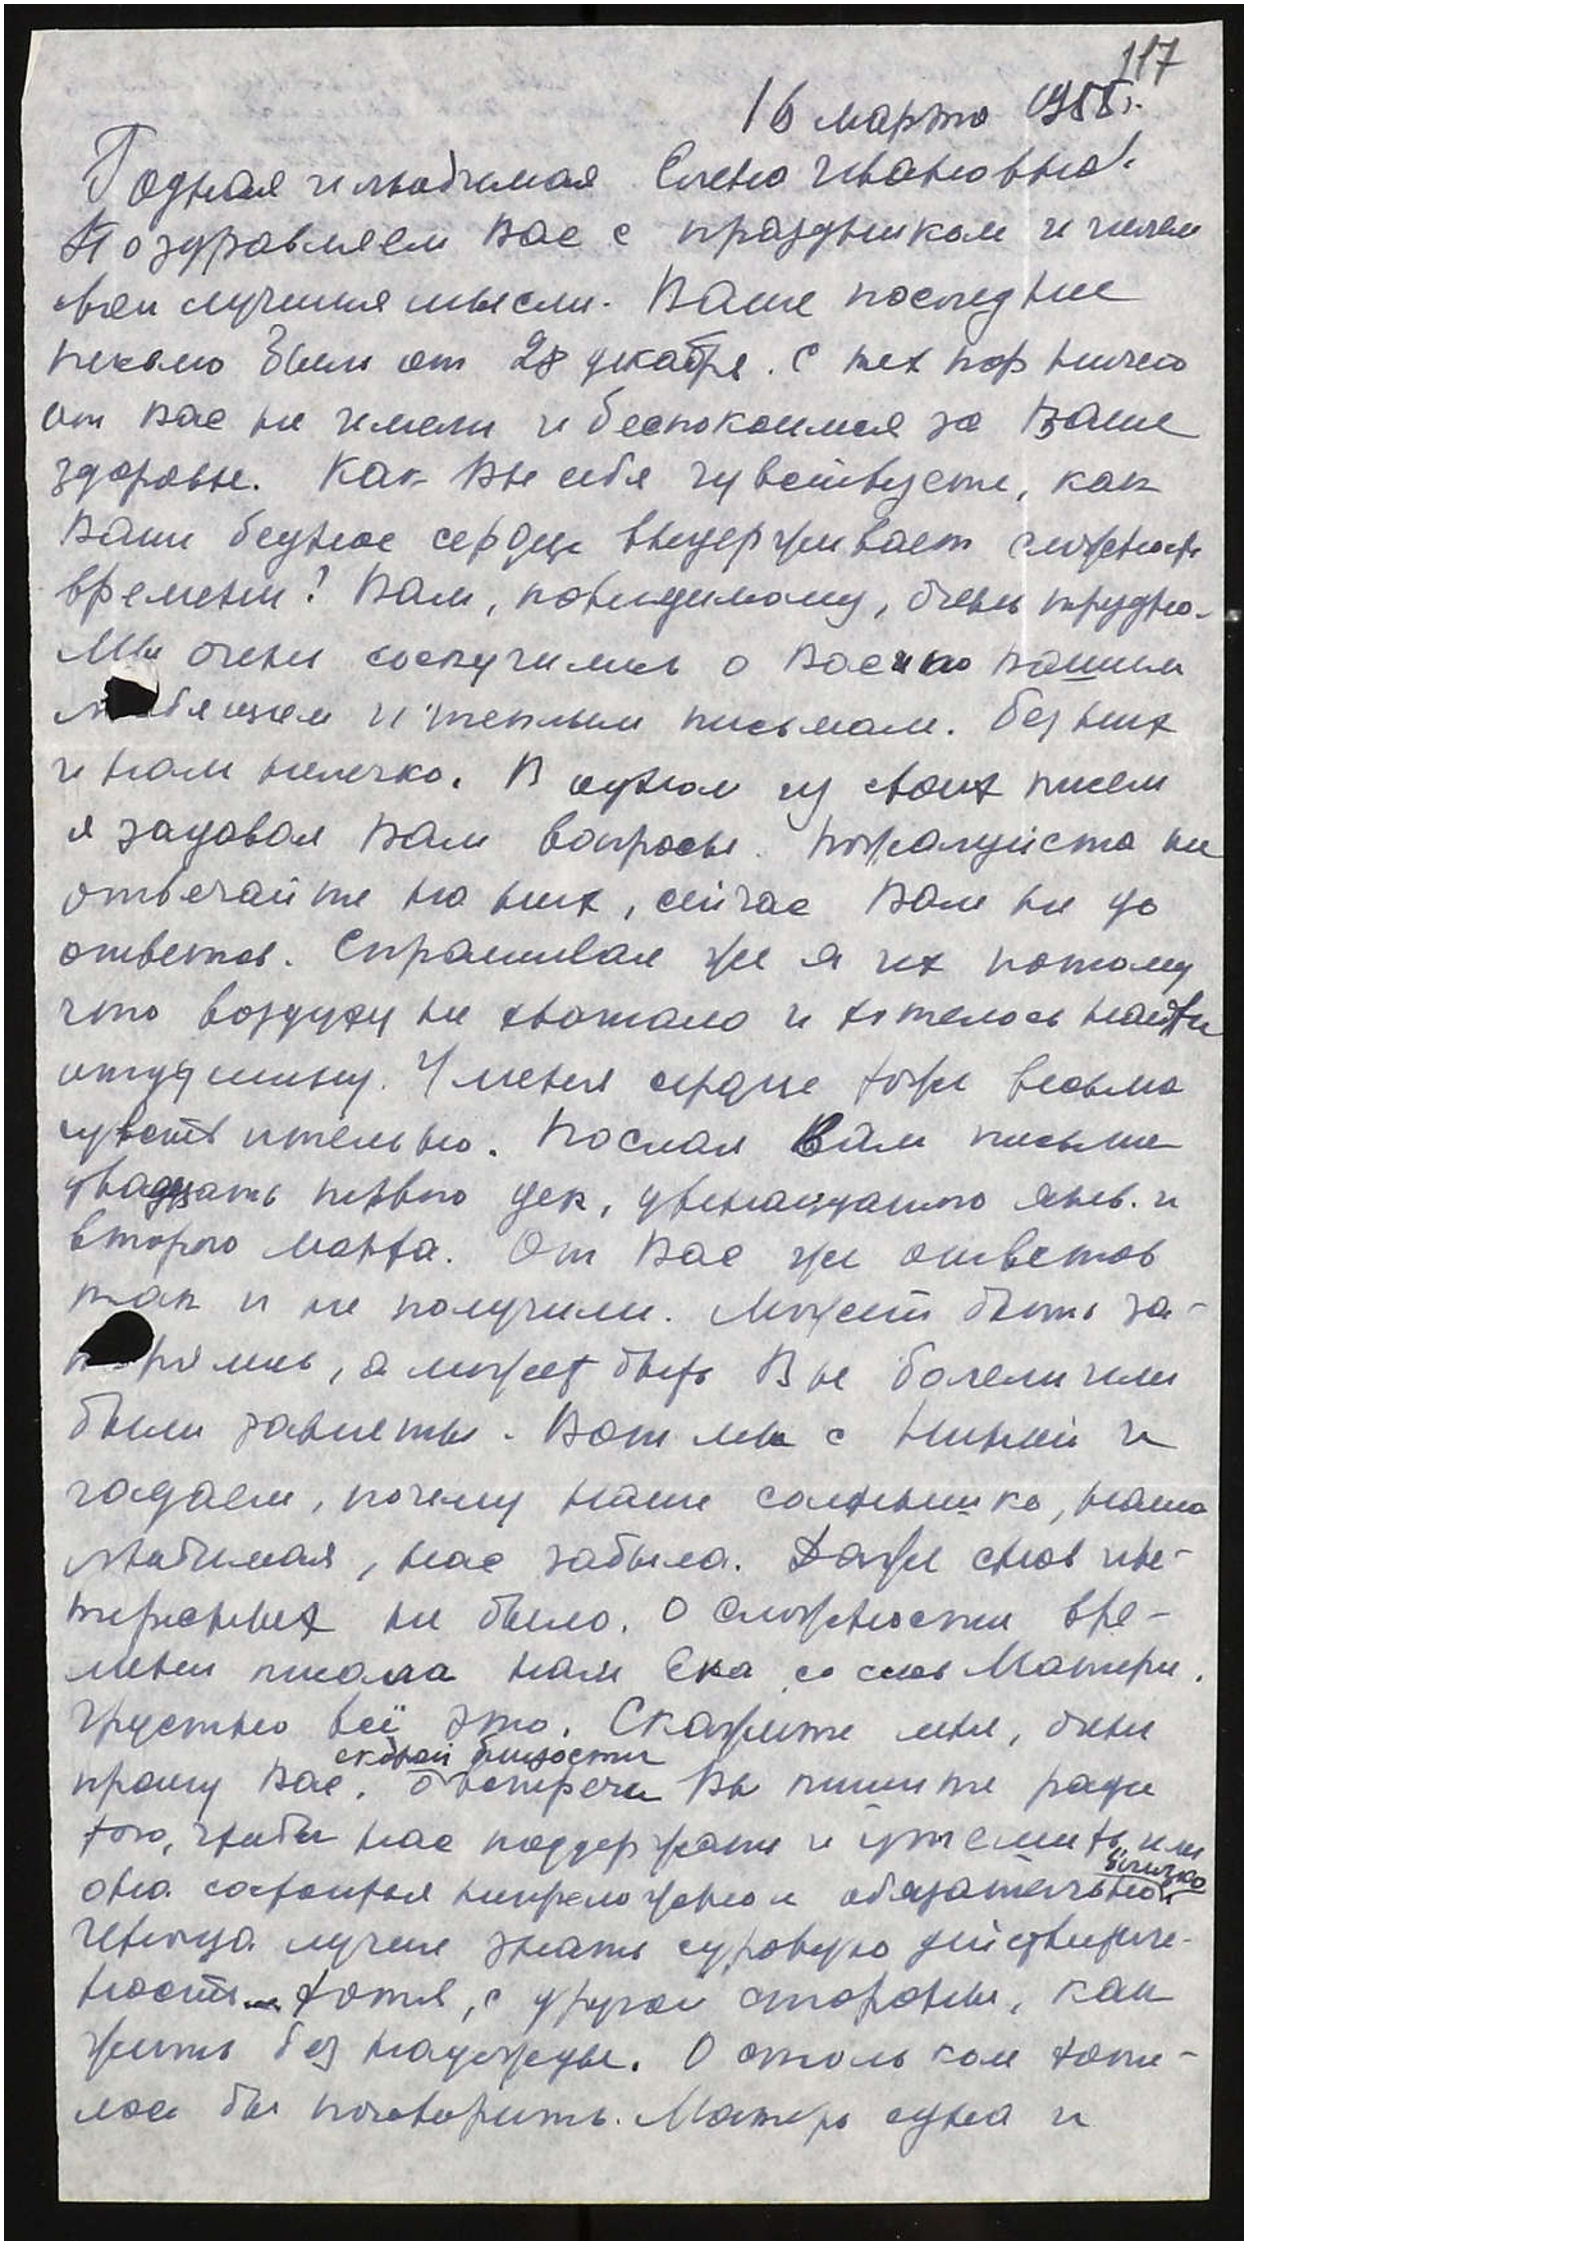 117
16 марта 1955 г.
Родная и любимая Елена Ивановна!
Поздравляем Вас с праздником и шлем
свои лучшия мысли. Ваше последнее
письмо было от 28 декабря. С тех пор ничего
от Вас не имели и беспокоимся за Ваше
здоровье. Как Вы себя чувствуете, как
Ваше бедное сердце выдерживает сложность
времени? Вам, повидимому, очень трудно.
Мы очень соскучились о Вас и по Вашим
любящем и теплым письмам. Без них
и нам нелегко. В одном из своих писем
я задавал Вам вопросы. Пожалуйста не
отвечайте на них, сейчас Вам не до
ответов. Спрашивал же я их потому
что воздуху не хватало и хотелось найти
отдушину. У меня сердце тоже весьма
чувствительно. Послал Вам письма
двадцать первого дек, двенадцатого янв. и
второго марта. От Вас же ответов
так и не получили. Может быть за-
терялись, а может быть Вы болели или
были заняты. Вот мы с Ниной и
гадаем, почему наше солнышко, наша
любимая, нас забыла. Даже снов ине-
тересных не было. О сложности вре-
мени писала нам Ека со слов Матери.
Грустно всё это. Скажите мне, очень
прошу Вас. О скорой близости встречи Вы пишите ради
того, чтобы нас поддержать и утешить, или
она состоится непреложно и обязательно близко?
Иногда лучше знать суровую действитель-
ность хотя, с другой стороны, как
жить без надежды. О стольком хоте-
лось бы поговорить. Матерь одна и